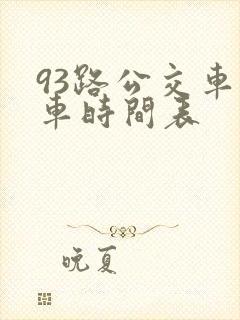 93路公交車
車時間表
晚夏